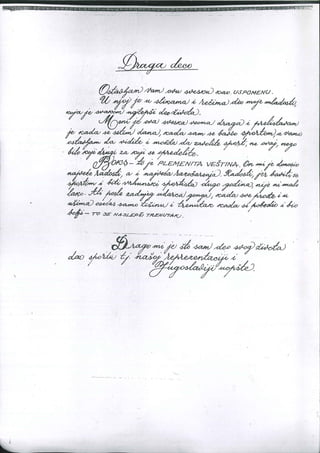 Draga deco
Ostavljam vam ovu svesku kao USPOMENU.
U njoj je u slikama i rečima deo moje mladosti,
koja je svakom najlepši deo života.
Meni je ova sveska veoma draga i prelistavam
je kada se setim dana, kada sam se bavio sportom, a vama
ostavljam da vidite i možda da zavolite sport, ne ovaj, nego
bilo koji drugi za koji se opredelite.
BOKS – to je PLEMENITA VEŠTINA. On mi je donosio
najveće radosti, a i najveća razočarenja. Radosti, jer baviti se
sportom i biti vrhunski sportista dugo godina, nije ni malo
lako. Ali posle zadnjeg udarca gonga, kada sve prođe i u
ušima osećaš samo tišinu i trenutak kada si pobedio i bio
bolji – TO JE NAJLEPŠI TRENUTAK.
Drago mi je što sam deo svog života
dao sportu tj našoj reprezentaciji i
Jugoslaviji uopšte.